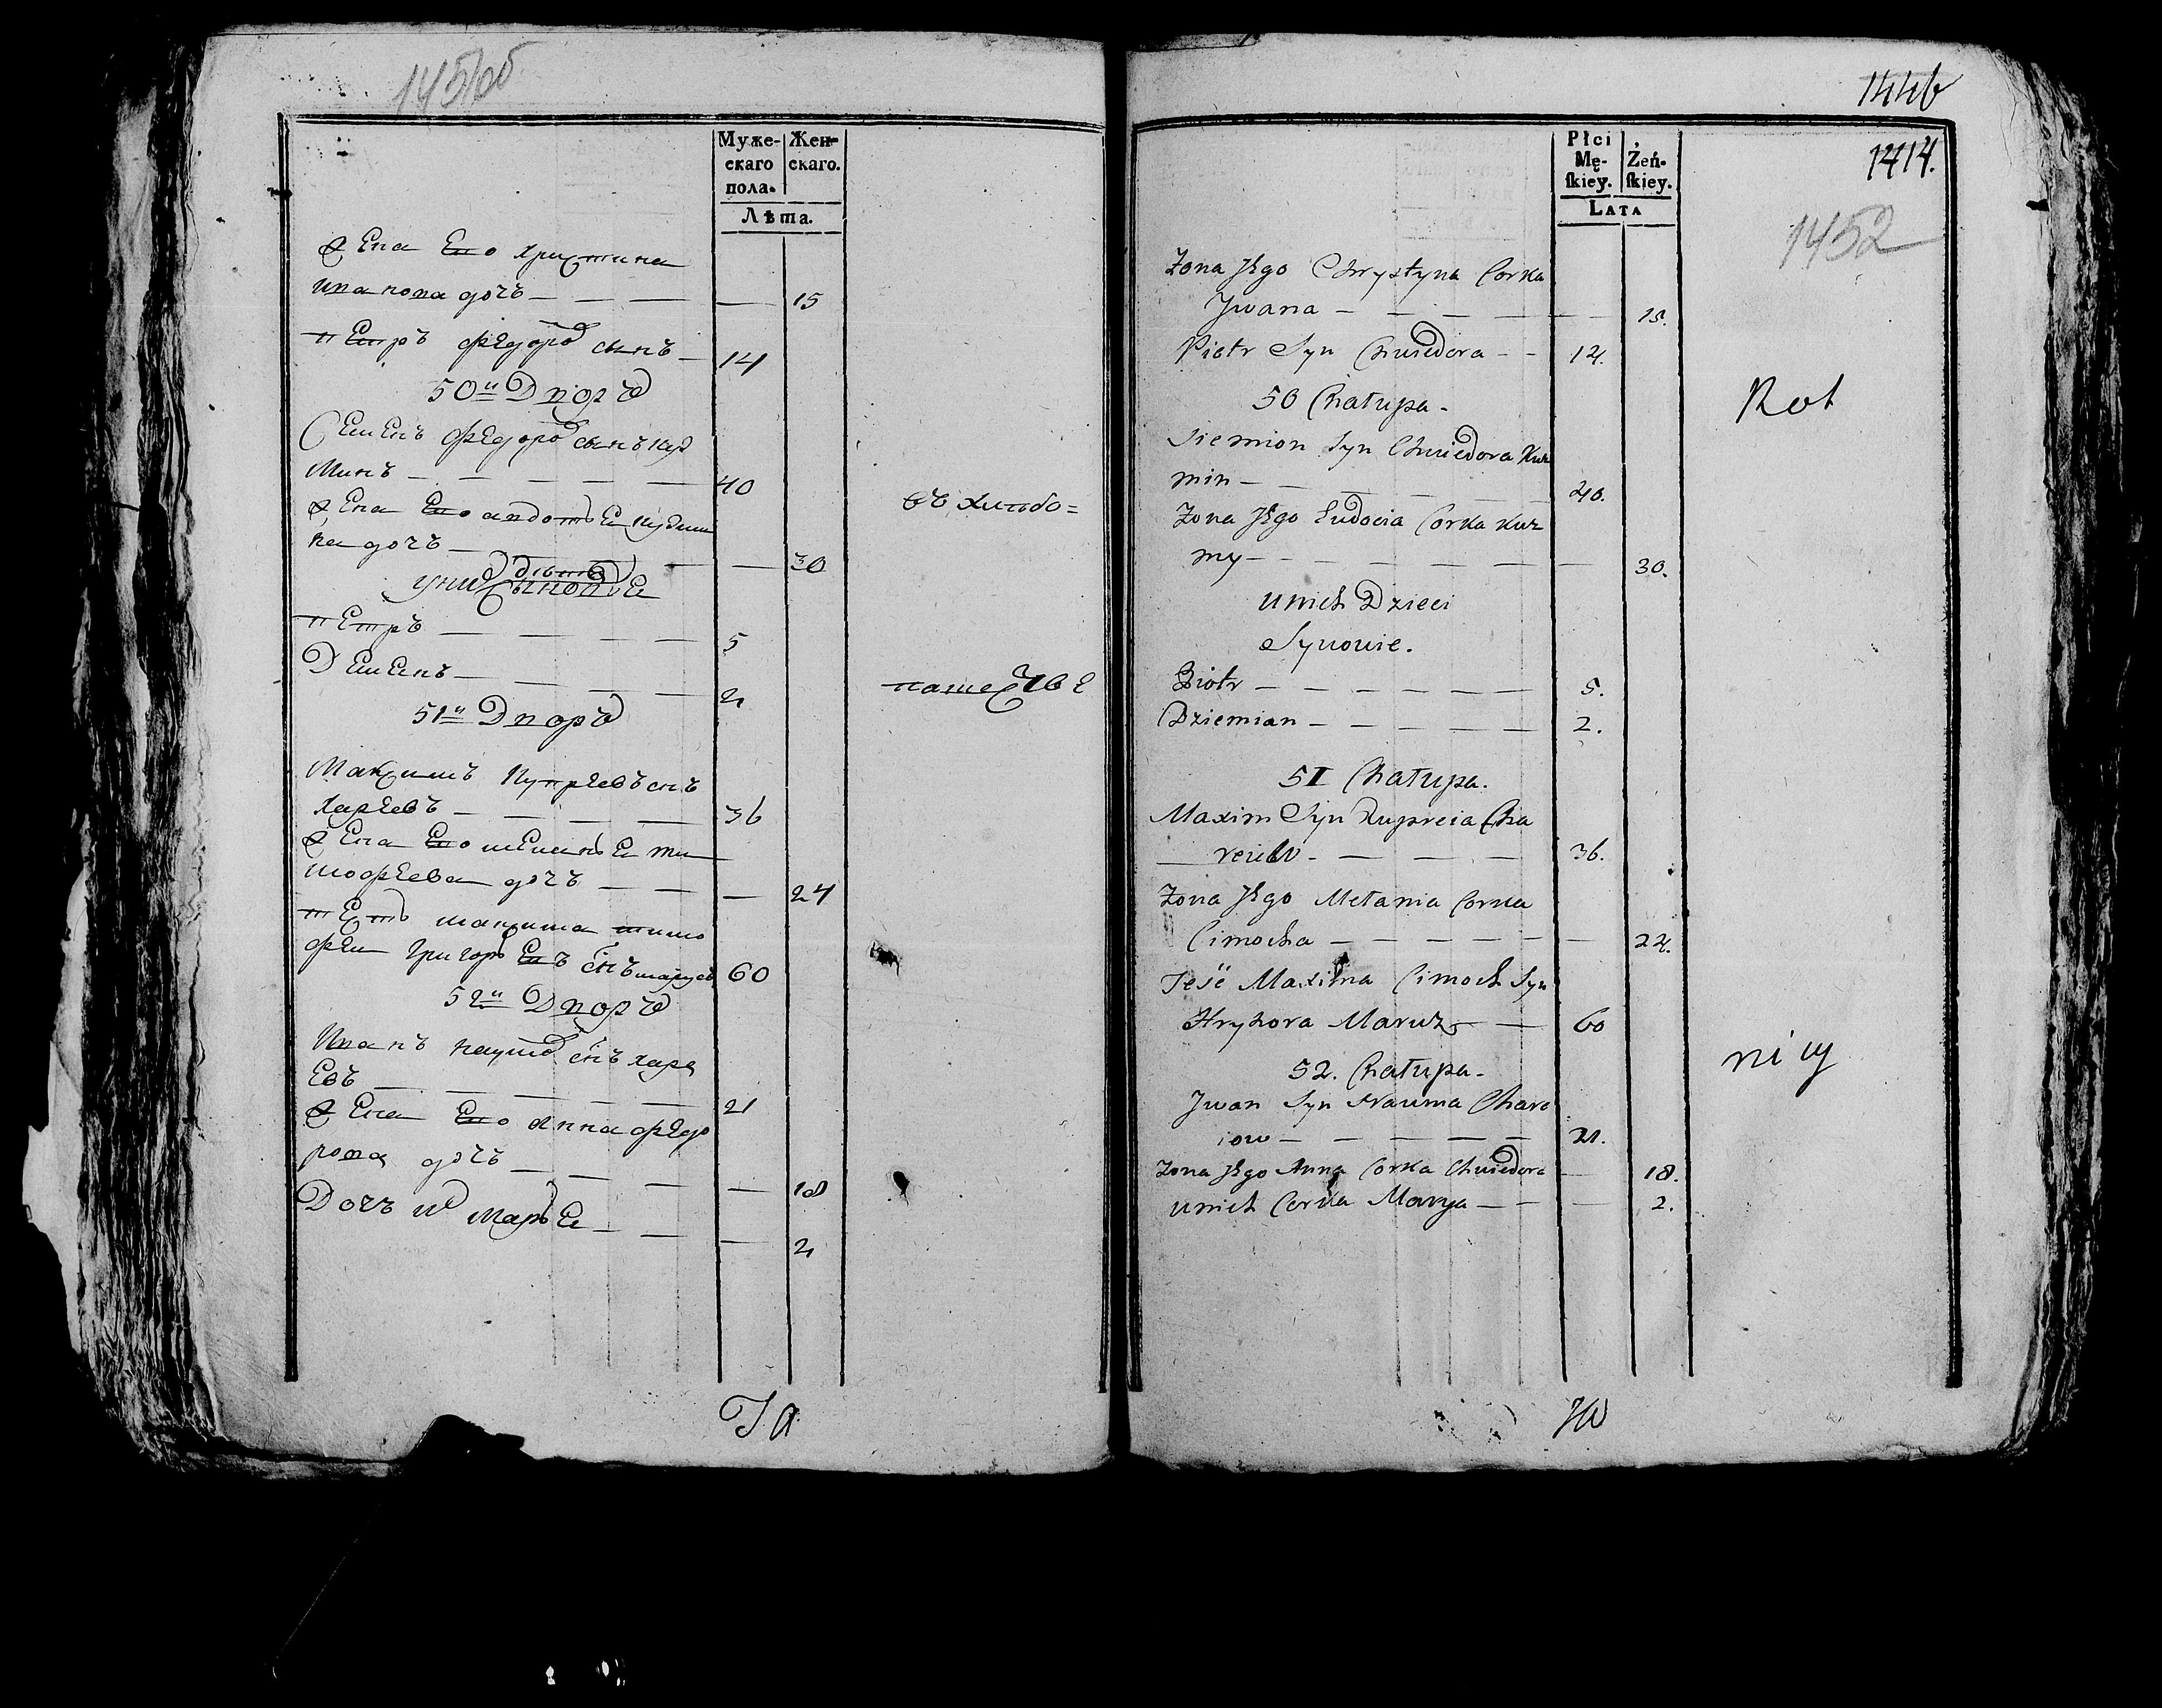 1451об
Муже-
скаго
пола.
Жен-
скаго.
Лѣта.
жена Его христина
ивановадочь — — — — 15
пЕтръ федоровъ сынъ — 14
50й Дворъ
СЕменъ федоровъ сынъ куз
минъ — — — — 40
жена Его авдотьЕя кузми
на дочь — — — 30
у них дѣти
сыновьЕ
пЕтръ — — — — 5
ДЕмЕнъ — — — — 2
51й Дворъ
Максимъ купреевъ снъ
харѣевъ — — — — 36
жена Его меланьЕя ти
мофеева дочь — — — 24
тЕсть максима тимо
фей григорьЕвъ снъ марузъ 60
52й Дворъ
Иванъ наумовъ снъ харѣ
Евъ — — — — 21
жена Его Анна федо
рова дочь — — — — 18
Дочь их марьЕя — — — 2
съ хлѣбо=
пашес
Płci
Mę-
ſkiey.
Żeń-
ſkiey.
LATA
1446
1414.
1452
Zona Jego Chrystyna Corka
Jwana — — — — — 15.
Piotr Syn Chwiedora - - 14.
50 Chałupa.
Siemion Syn Chwiedora Kuz
min — — — — — 40.
Zona Jego Eudocia Corka Kuz
my — — — — — — 30.
unich Dzieci
Synowie.
Piotr — — — — — — 5.
Dziemian — — — — — 2.
51 Chałupa.
Maxim Syn Kupreia Cha
reiew — — — — 36.
Zona Jego Melania Corka
Cimocha — — — — — — 24.
Teść Maxima Cimoch Syn
Hryhora Maruz — — 60
52. Chałupa.
Jwan Syn Nauma Chare
iow — — — — — 21.
Zona Jego Anna Corka Chwiedora — 18.
unich Corka Marya — — — 2.
Rol
nicy